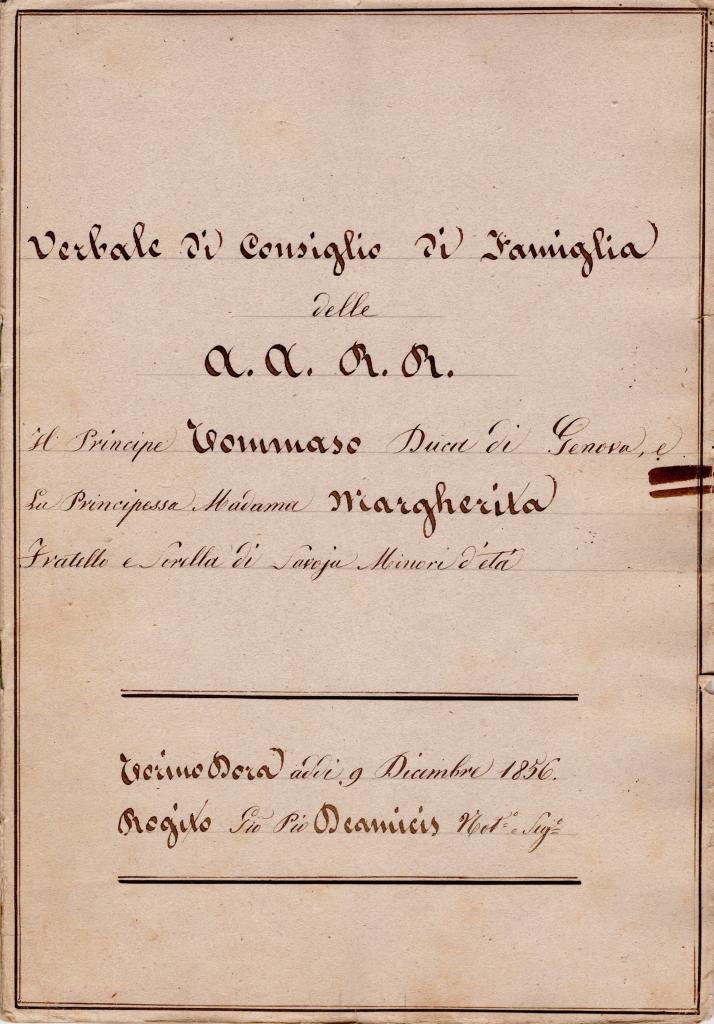 Verbale di Consiglio di Famiglia
delle
A. A. R. R.
Il Principe Tommaso Duca di Genova, e
La Principessa Madama Margherita
Fratello e Sorella di Savoja Minori d'età
Torino Dora addi 9 Dicembre 1856.
Rogito Gio Pio Deamicis Not.º e Seg.º